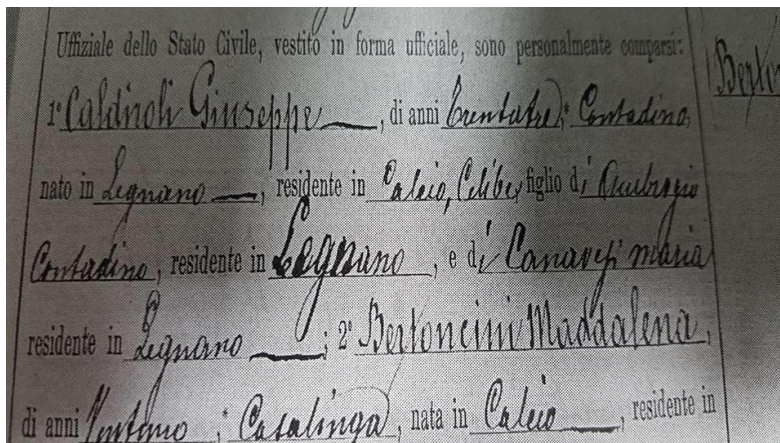 Uffiziale dello Stato Civile, vestito in forma ufficiale, sono personalmente comparsi:
1° Caldiroli Giuseppe, di anni trentatre, Contadino,
nato in Legnano, residente in Calcio, Celibe, figlio di Ambrogio
Contadino, residente in Legnano, e di Canavesi Maria
residente in Legnano; 2° Bertoncini Maddalena,
di anni ventuno, Casalinga, nata in Calcio, residente in